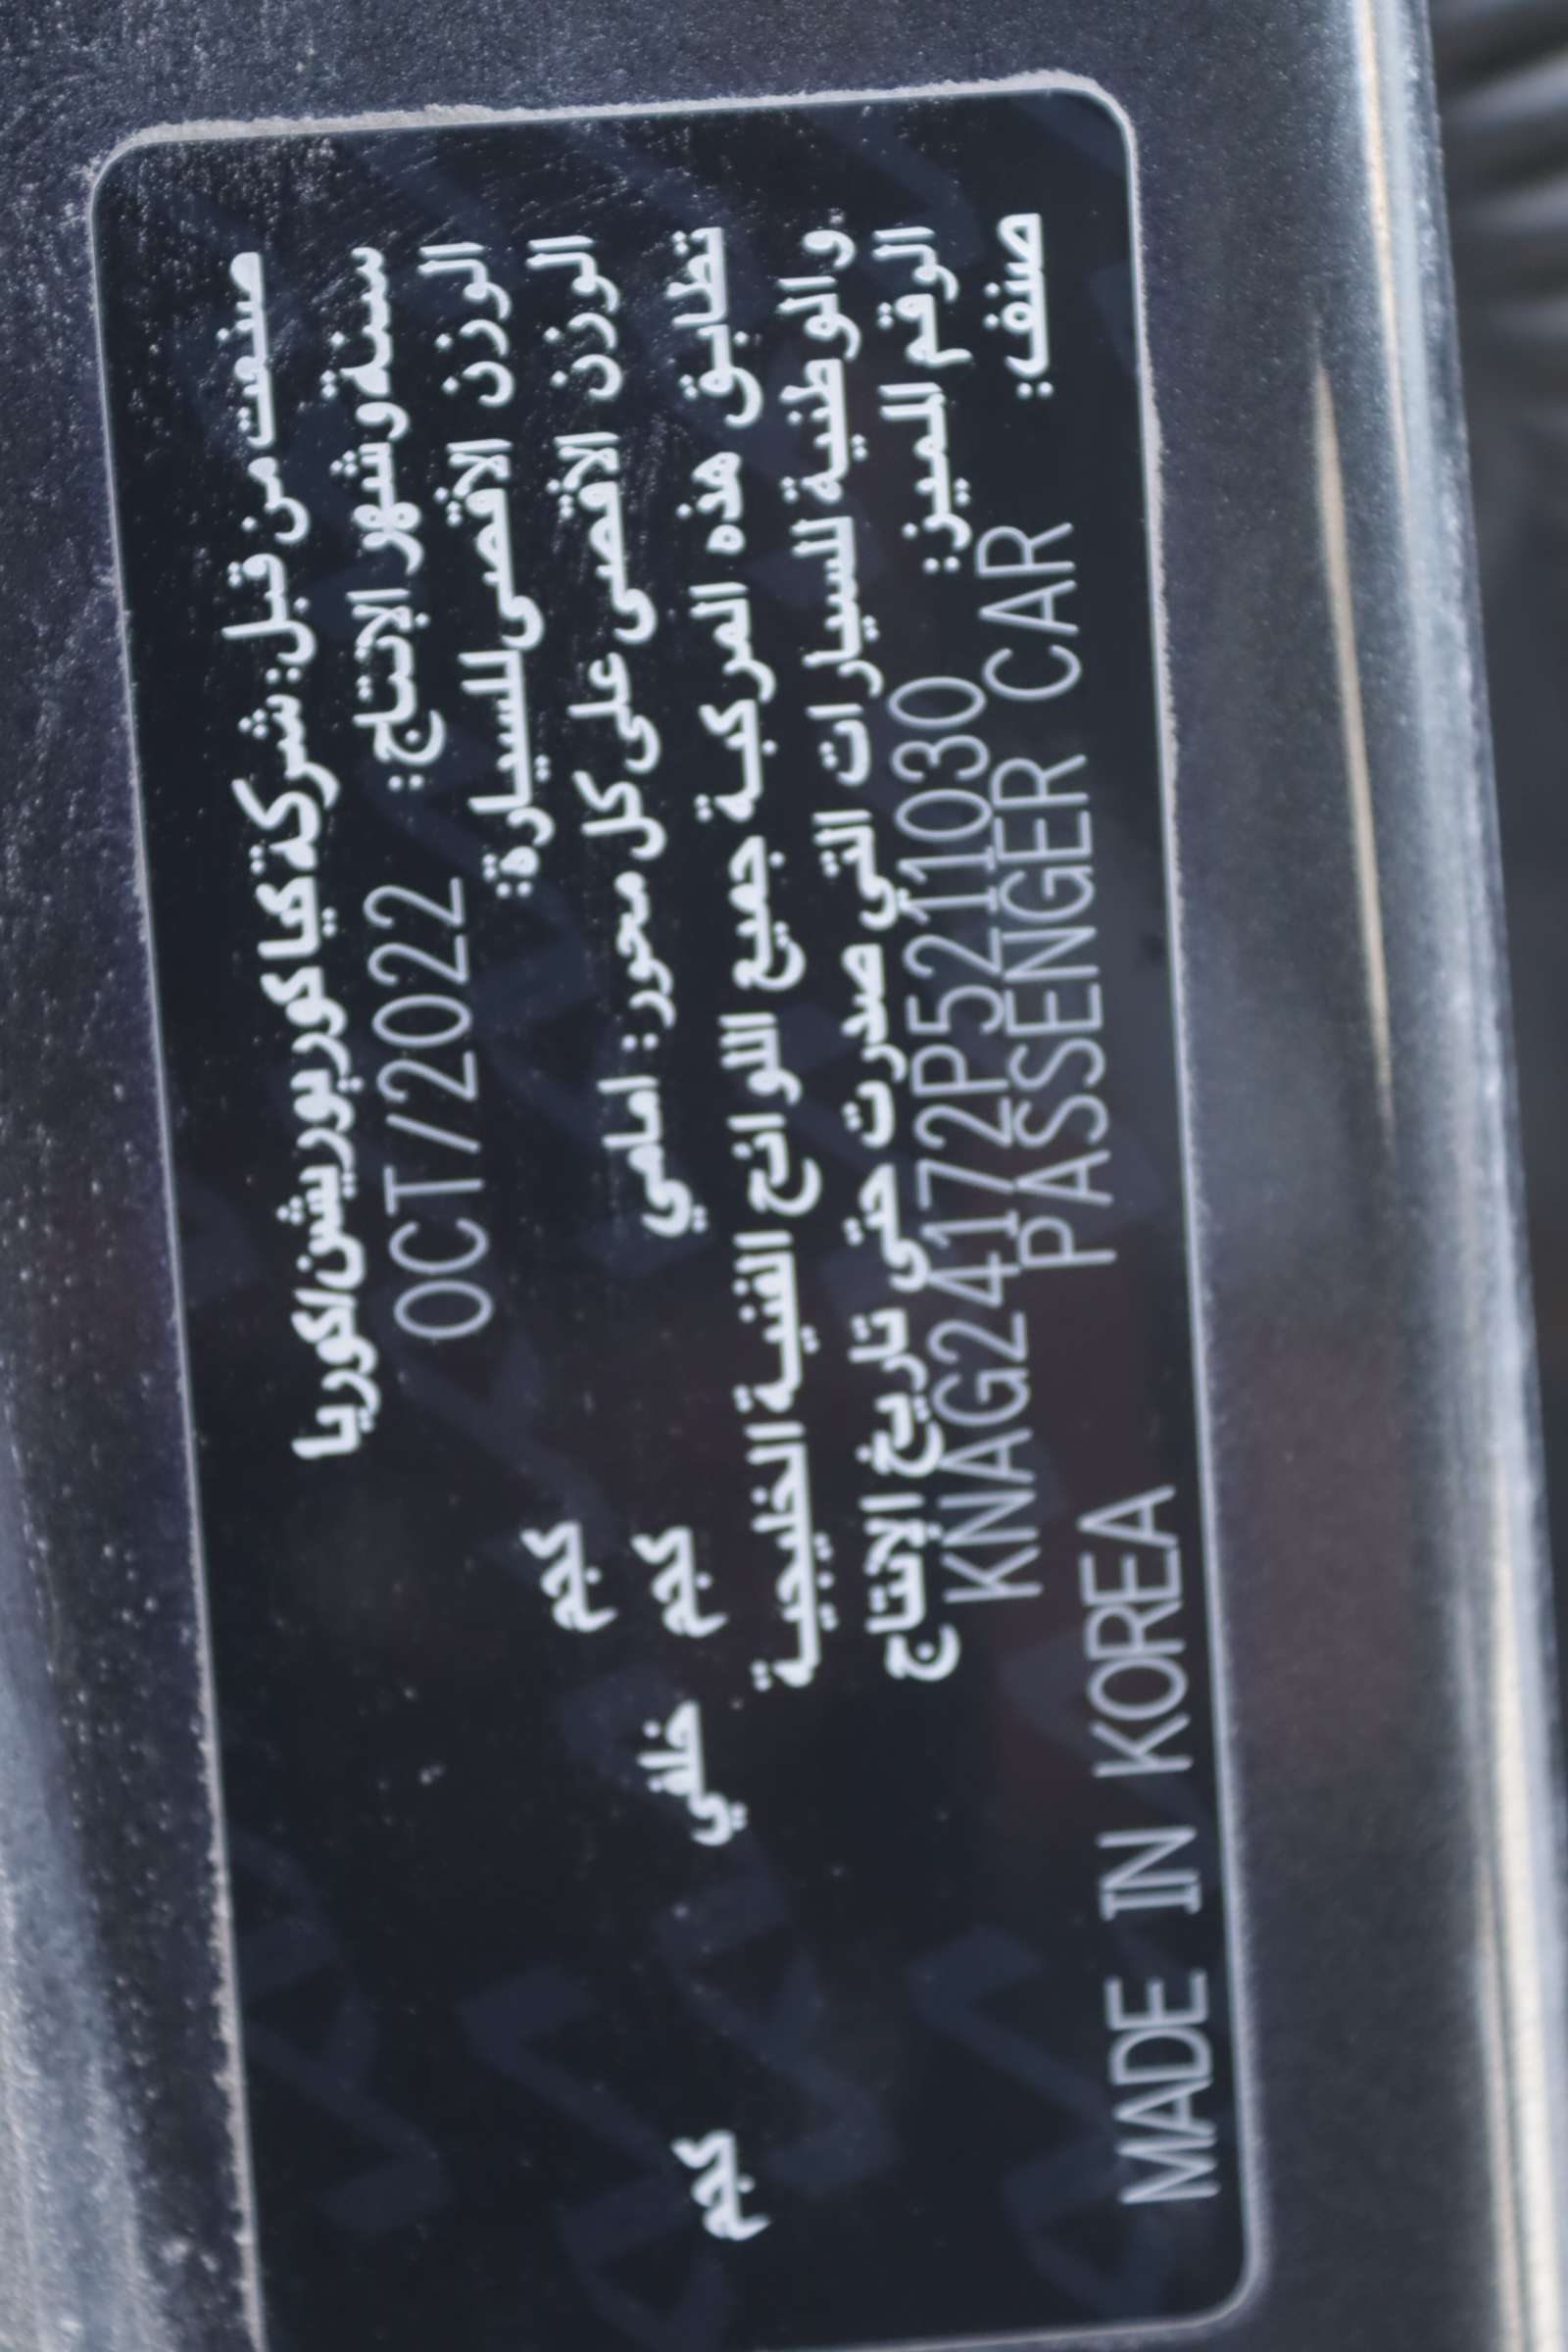 صنعت من قبل: شركة كيا كوربوريشن/كوريا
سنة وشهر الإنتاج: OCT/2022
الوزن الاقصى للسيارة: كجم
الوزن الاقصى على كل محور: امامي كجم خلفي كجم
تطابق هذه المركبة جميع اللوائح الفنية الخليجية
والوطنية للسيارات التي صدرت حتى تاريخ الإنتاج
الرقم المميز: KNAG24172P5211030
صنف: PASSENGER CAR
MADE IN KOREA